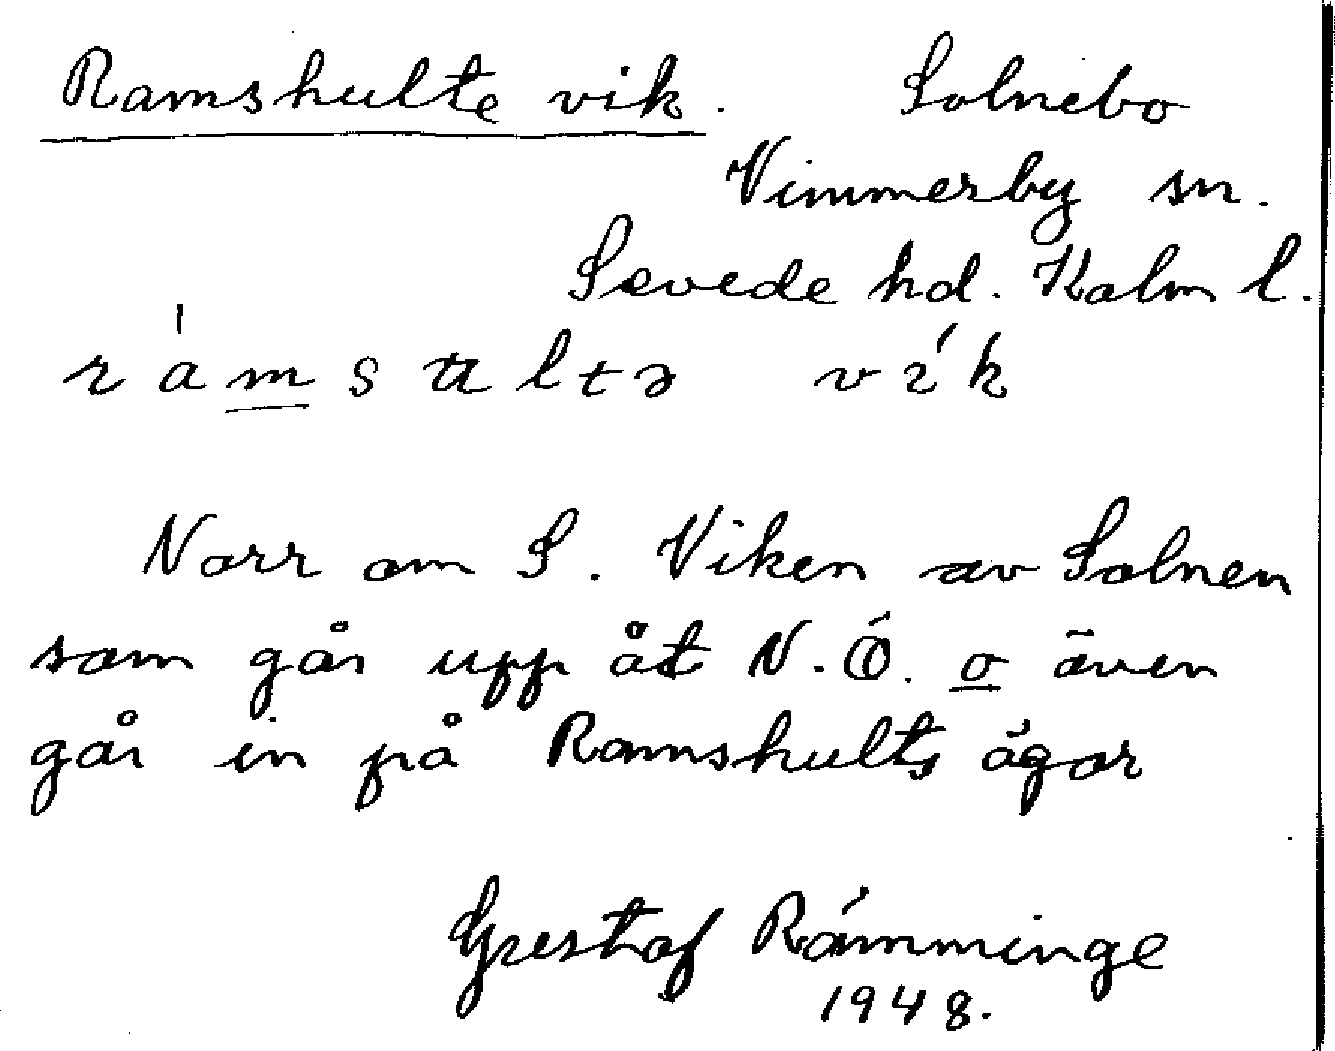 Ramshulte vik. Solnebo
Vimmerby sn.
Sevede hd. Kalm l.
Norr om S. Viken av Solnen
som går upp åt N.Ö. o även
går in på Ramshults ägor
Gustaf Rämminge
1948.